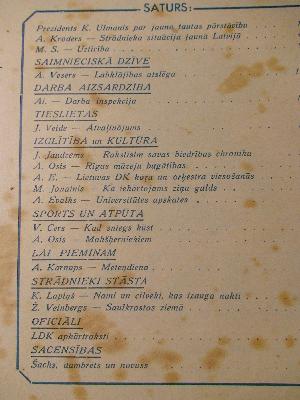 SATURS:
Prezidents K. Ulmanis par jauno tautas pārstāvību
A. Kroders — Strādnieka situācija jaunā Latvijā
M. S. — Uzticība
SAIMNIECISKĀ DZĪVE
A. Vesers — Labklājības atslēga
DARBA AIZSARDZĪBA
Al. — Darba inspekcija
TIESLIETAS
J. Veide — Atvaļinājums
IZGLĪTĪBA un KULTŪRA
J. Jaudzems — Rakstīsim savas biedrības chroniku
A. Osis — Rīgas mūzeju bagātības
A. E. — Lietuvas DK kora un orķestra viesošanās
M. Jonainis — Ka iehortojams ziņu galds
A. Evalks — Universitātes apskates
SPORTS UN ATPŪTA
V. Cers — Kad sniegs kūst
A. Osis — Mākšķerniekiem
LAI PIEMINAM
A. Karnaps — Meteņdiena
STRĀDNIEKI STĀSTA
K. Lapiņš — Nami un cilvēki, kas izauga naktī
Ž. Veinbergs — Saulkrastos ziemā
OFICIĀLI
LDK apkārtraksti
SACENSĪBAS
Šachs, dambrets un novuss